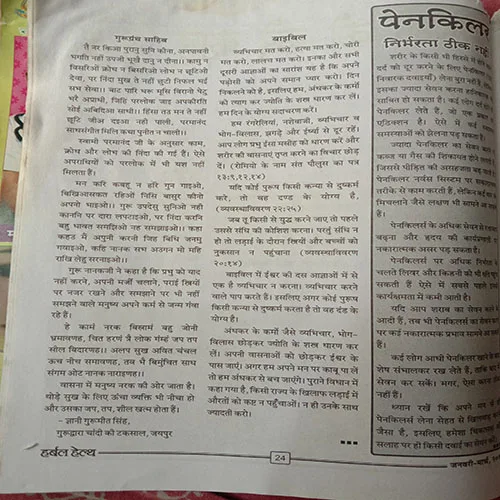 गुरुग्रंथ साहिब
तै नर किआ पुरानु सुनि कीना, अनपावनी
भगति नहीं उपजी भूखे दानु न दीना।। कामु न
बिसरिओ क्रोध न बिसरिओ लोभ न छूटिओ
देवा, पर निंदा मुख ते नहीं छूटी निफल भई
सभ सेवा।। बाट पारि घरू मूसि बिरानो पेटु
भरै अप्राधी, जिहि परलोक जाइ अपकीरति
सोई अबिदिआ साधी।। हिंसा तउ मन ते नहीं
छूटि जीअ दइआ नही पाली, परमानंद
साधसंगति मिलि कथा पुनीत न चाली।।
स्वामी परमानंद जी के अनुसार काम,
क्रोध और लोभ की निंदा की गई हैं। ऐसे
अपराधियों को परलोक में भी यश नहीं
मिलता हैं।
मन करि कबहू न हरि गुन गाइओ,
बिखिआसकत रहिओ निसि बासुर कीनो
अपनो भाइओ।। गुरू उपदेसु सुनिओ नही
काननि पर दारा लपटाइओ, पर निंदा करनि
बहु धावत समझिओ नह समझाइओ।। कहा
कहउ मैं अपुनी करनी जिह बिधि जनमु
गवाइओ, कहि नानक सभ अउगन मो महि
राखि लेहु सरनाइओ।।
गुरू नानकजी ने कहा हैं कि प्रभु को याद
नहीं करने, अपनी मर्जी चलाने, पराई स्त्रियों
पर नजर रखने और समझाने पर भी नहीं
समझने वाले मनुष्य अपने कर्म से जन्म गंवा
रहे हैं।
हे कामं नरक बिस्रामं बहु जोनी
भ्रमावणह, चित हरणं त्रै लोक गंम्यं जप तप
सील बिदारणह।। अलप सुख अवित चंचल
ऊच नीच समावणह, तव भै बिमुंचित साध
संगम ओट नानक नाराइणह।।
वासना में मनुष्य नरक की ओर जाता है।
थोड़े सुख के लिए ऊंचा व्यक्ति भी नीचा हो
और उसका जप, तप, शील खत्म होता हैं।
- ज्ञानी गुरूमीत सिंह,
गुरूद्वारा चांदी की टकसाल, जयपुर
बाइबिल
व्यभिचार मत करो, हत्या मत करो, चोरी
मत करो, लालच मत करो। इनका और सभी
दूसरी आज्ञाओं का सारांश यह है कि अपने
पड़ोसी को अपने समान प्यार करो। दिन
निकलने को है, इसलिए हम, अंधकर के कर्मों
को त्याग कर ज्योति के शस्त्र धारण कर लें।
हम दिन के योग्य सदाचरण करें।
हम रंगरेलियां, नशेबाजी, व्यभिचार व
भोग-बिलास, झगड़े और ईर्ष्या से दूर रहें।
आप लोग प्रभु ईसा मसीह को धारण करें और
शरीर की वासनाएं तृप्त करने का विचार छोड़
दें। (रोमियो के नाम संत पौलुस का पत्र
१३:९,१२,१४)
यदि कोई पुरूष किसी कन्या से दुष्कर्म
करे, तो वह दण्ड के योग्य है,
(व्यवस्थाविवरण २२:२५)
जब तू किसी से युद्ध करने जाए तो पहले
उससे संधि की कोशिश करना। परंतु संधि न
हो तो लड़ाई के दौरान स्त्रियों और बच्चों को
नुकसान न पहुंचाना (व्यवस्थाविवरण
२०:१४)
बाइबिल में ईश्वर की दस आज्ञाओं में से
एक है व्यभिचार न करना। व्यभिचार करने
वाले पाप करते है। इसलिए अगर कोई पुरूष
किसी कन्या से दुष्कर्म करता है तो वह दंड के
योग्य है।
अंधकर के कर्मों जैसे व्यभिचार, भोग-
बिलास छोड़कर ज्योति के शस्त्र धारण कर
लें। अपनी वासनाओं को छोड़कर ईश्वर के
पास जाएं। अगर हम अपने मन पर काबू पा लें
तो हम अंधकर से बच जाएंगे। पुराने विधान में
कहा गया है, किसी राज्य के खिलाफ लड़ाई में
औरतों को कष्ट न पहुँचाओं। न ही उनके साथ
ज्यादती करो।
पेनकिलर
निर्भरता ठीक नहीं
शरीर के किसी भी हिस्से में
दर्द को दूर करने के लिए पेनकिलर
निवारक दवाइयाँ) लेना बुरा नहीं है,
इसका जरूरत से ज्यादा सेवन हानिकारक
साबित हो सकता है। कई लोग दर्द होते
पेनकिलर लेते हैं, जो एक प्रकार
एडिक्शन है। ऐसे में कई
समस्याओं को झेलना पड़ सकता है।
ज्यादा पेनकिलर का सेवन करने
कब्ज या गैस की शिकायत होने लगती है,
जिससे पीड़ित की असहजता बढ़
पेनकिलर नर्वस सिस्टम पर
तरीके से काम करती है, लेकिन
मिचलाने जैसे लक्षण भी सामने आ
हैं।
पेनकिलर्स के अधिक सेवन से
बढ़ना और हृदय की कार्यप्रणाली
नकारात्मक असर पड़ सकता है।
पेनकिलर्स पर अधिक निर्भरता
चलते लिवर और किडनी को भी क्षति
सकती हैं ऐसे में सबसे पहले इनकी
कार्यक्षमता में कमी आती है।
यदि आप शराब का सेवन करने के
आदी हैं, तब भी पेनकिलर्स का सेवन
पर कई नकारात्मक प्रभाव सामने आ
हैं।
कई लोग आधी पेनकिलर खाने के
शेष संभालकर रख लेते हैं, ताकि
सेवन कर सकें। मगर, ऐसा करना
नहीं है।
ध्यान रखें कि अपने मन से
पेनकिलर्स लेना सेहत से खिलवाड़
जैसा है, इसलिए हमेशा चिकित्सक
सलाह पर ही किसी दवाई का सेवन
हर्बल हेल्थ
24
जनवरी-मार्च,